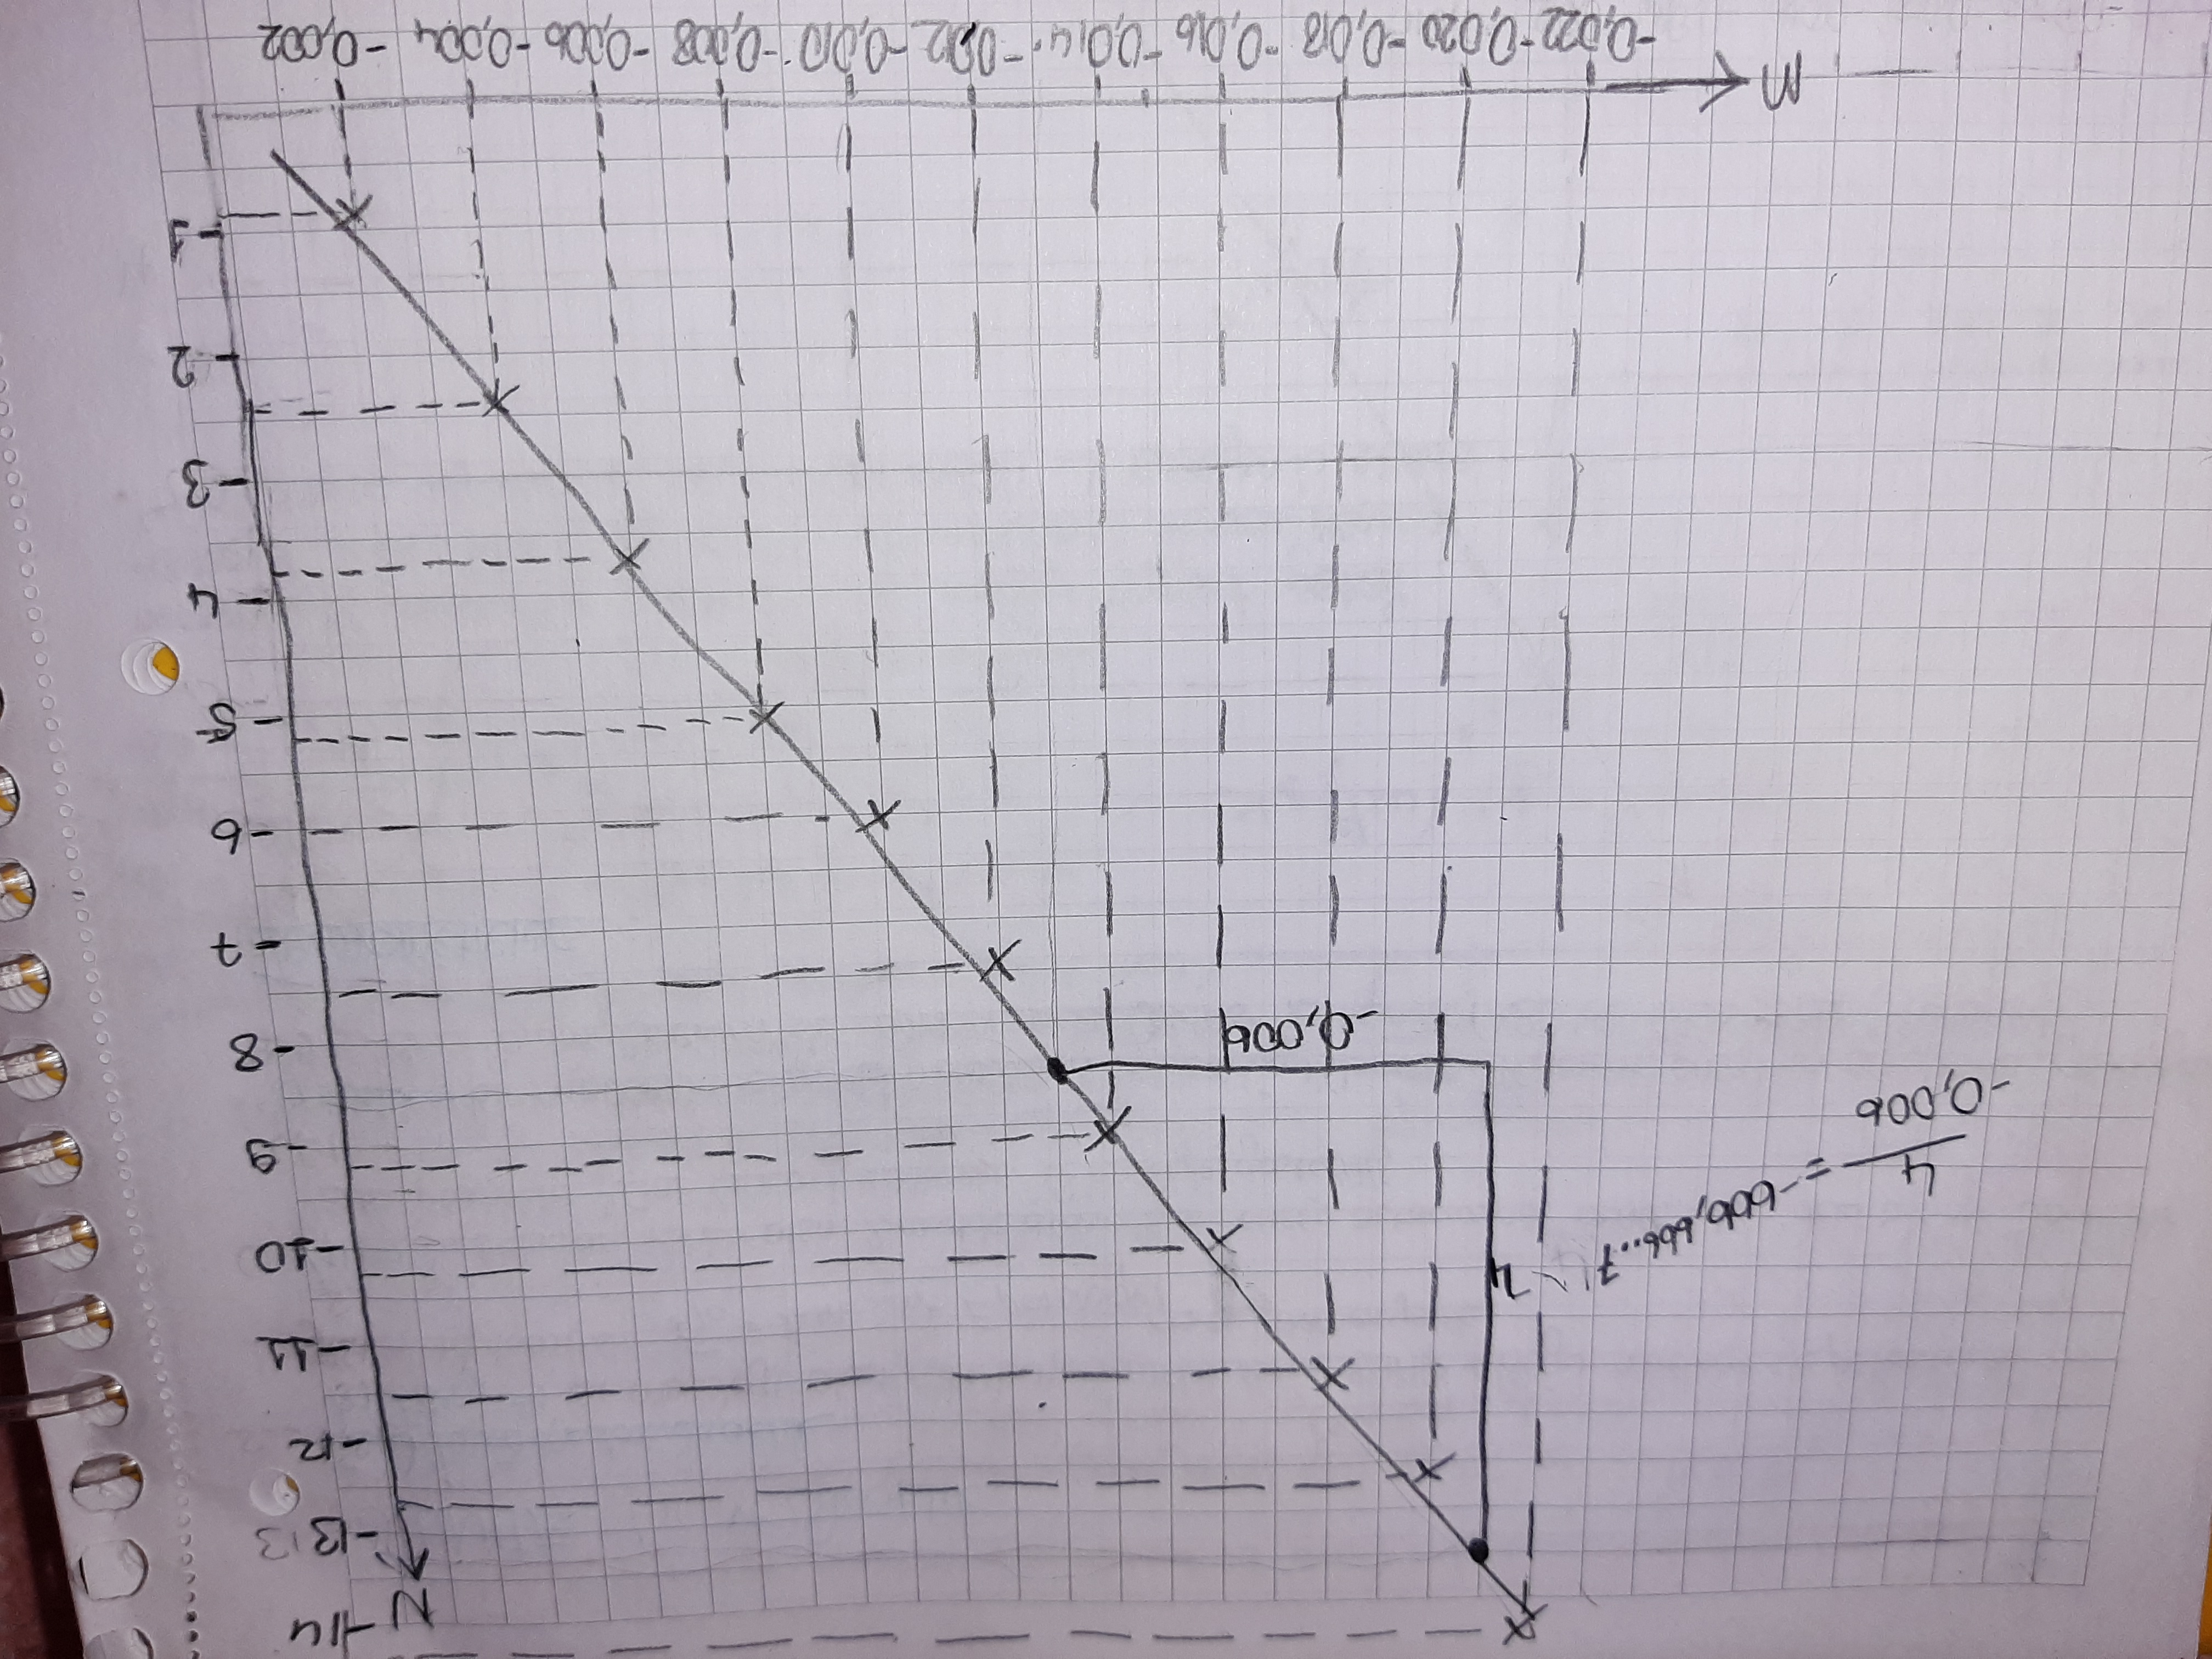 N -14
-13 13
-12
-11
-10
-9
-8
-7
-6
-5
-4
-3
-2
-1
4
4
-0,006
= -666,666..7
-0,006
M
-0,022 -0,020 -0,018 -0,016 -0,014 -0,012 -0,010 -0,008 -0,006 -0,004 -0,002